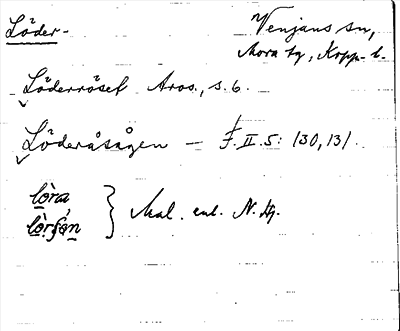 Löder-
Venjans sn,
Mora tg, Kopp. l.
Löderröset Aros., s. 6.
Löderåsågen – F. II. 5: 130, 131.
lòra
lòrsǻn } Mal. enl. N. Hg.